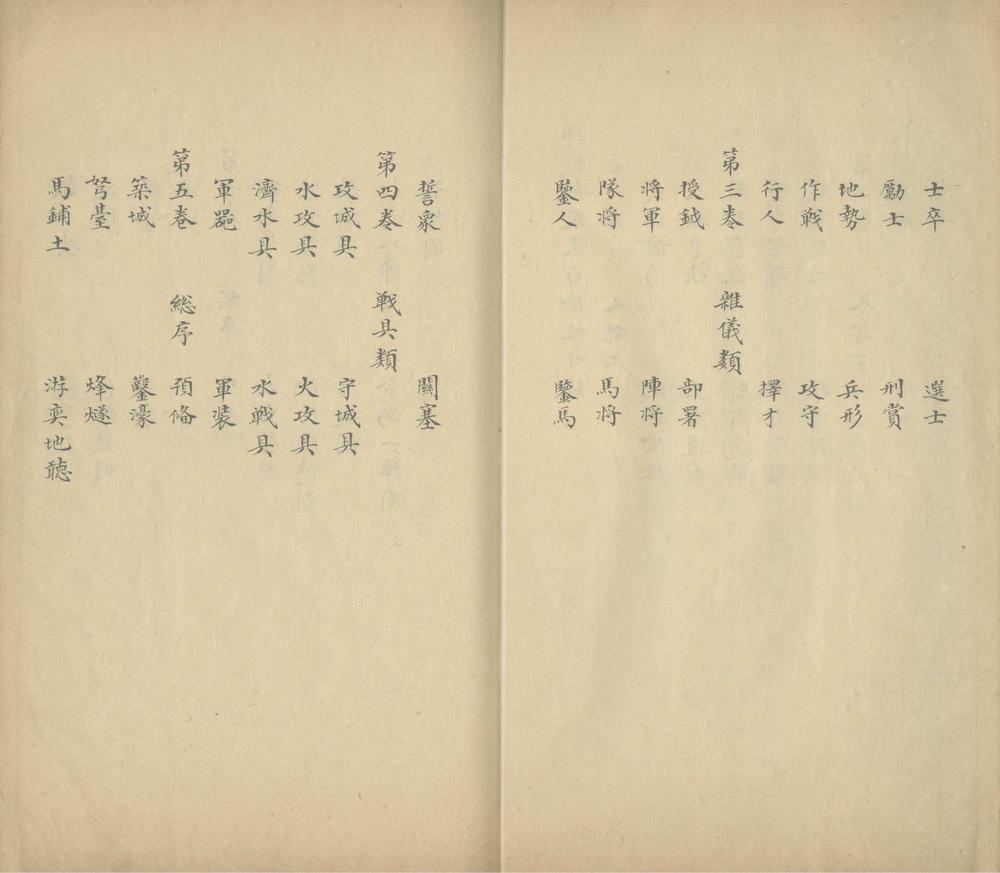 士卒　選士
勵士　刑賞
地勢　兵形
作戦　攻守
行人　擇才
第三巻　雜儀類
授鉞　部署
將軍　陣将
隊將　馬將
鑒人　鑒馬
誓衆　關塞
第四巻　戰具類
攻城具　守城具
水攻具　火攻具
濟水具　水戰具
軍器　軍装
第五巻　総序　預備
築城　鑿濠
弩臺　烽燧
馬鋪土　游奕地聽